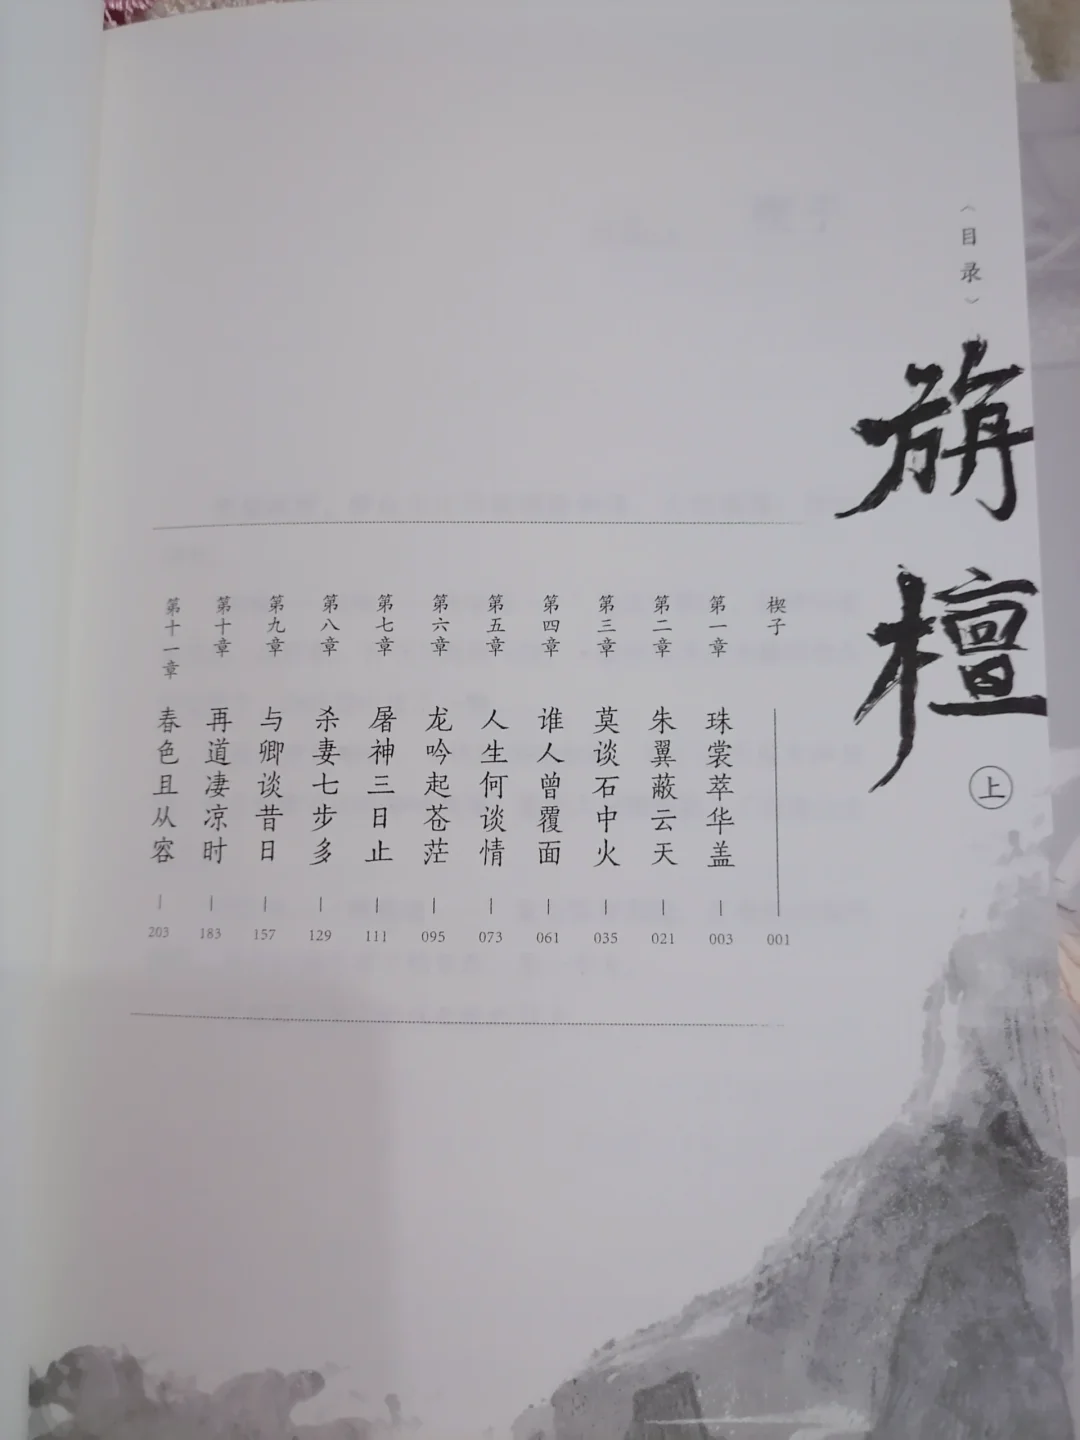 〈目录〉
旃檀
上
楔子 001
第一章 珠裳萃华盖 003
第二章 朱翼蔽云天 021
第三章 莫谈石中火 035
第四章 谁人曾覆面 061
第五章 人生何谈情 073
第六章 龙吟起苍茫 095
第七章 屠神三日止 111
第八章 杀妻七步多 129
第九章 与卿谈昔日 157
第十章 再道凄凉时 183
第十一章 春色且从容 203